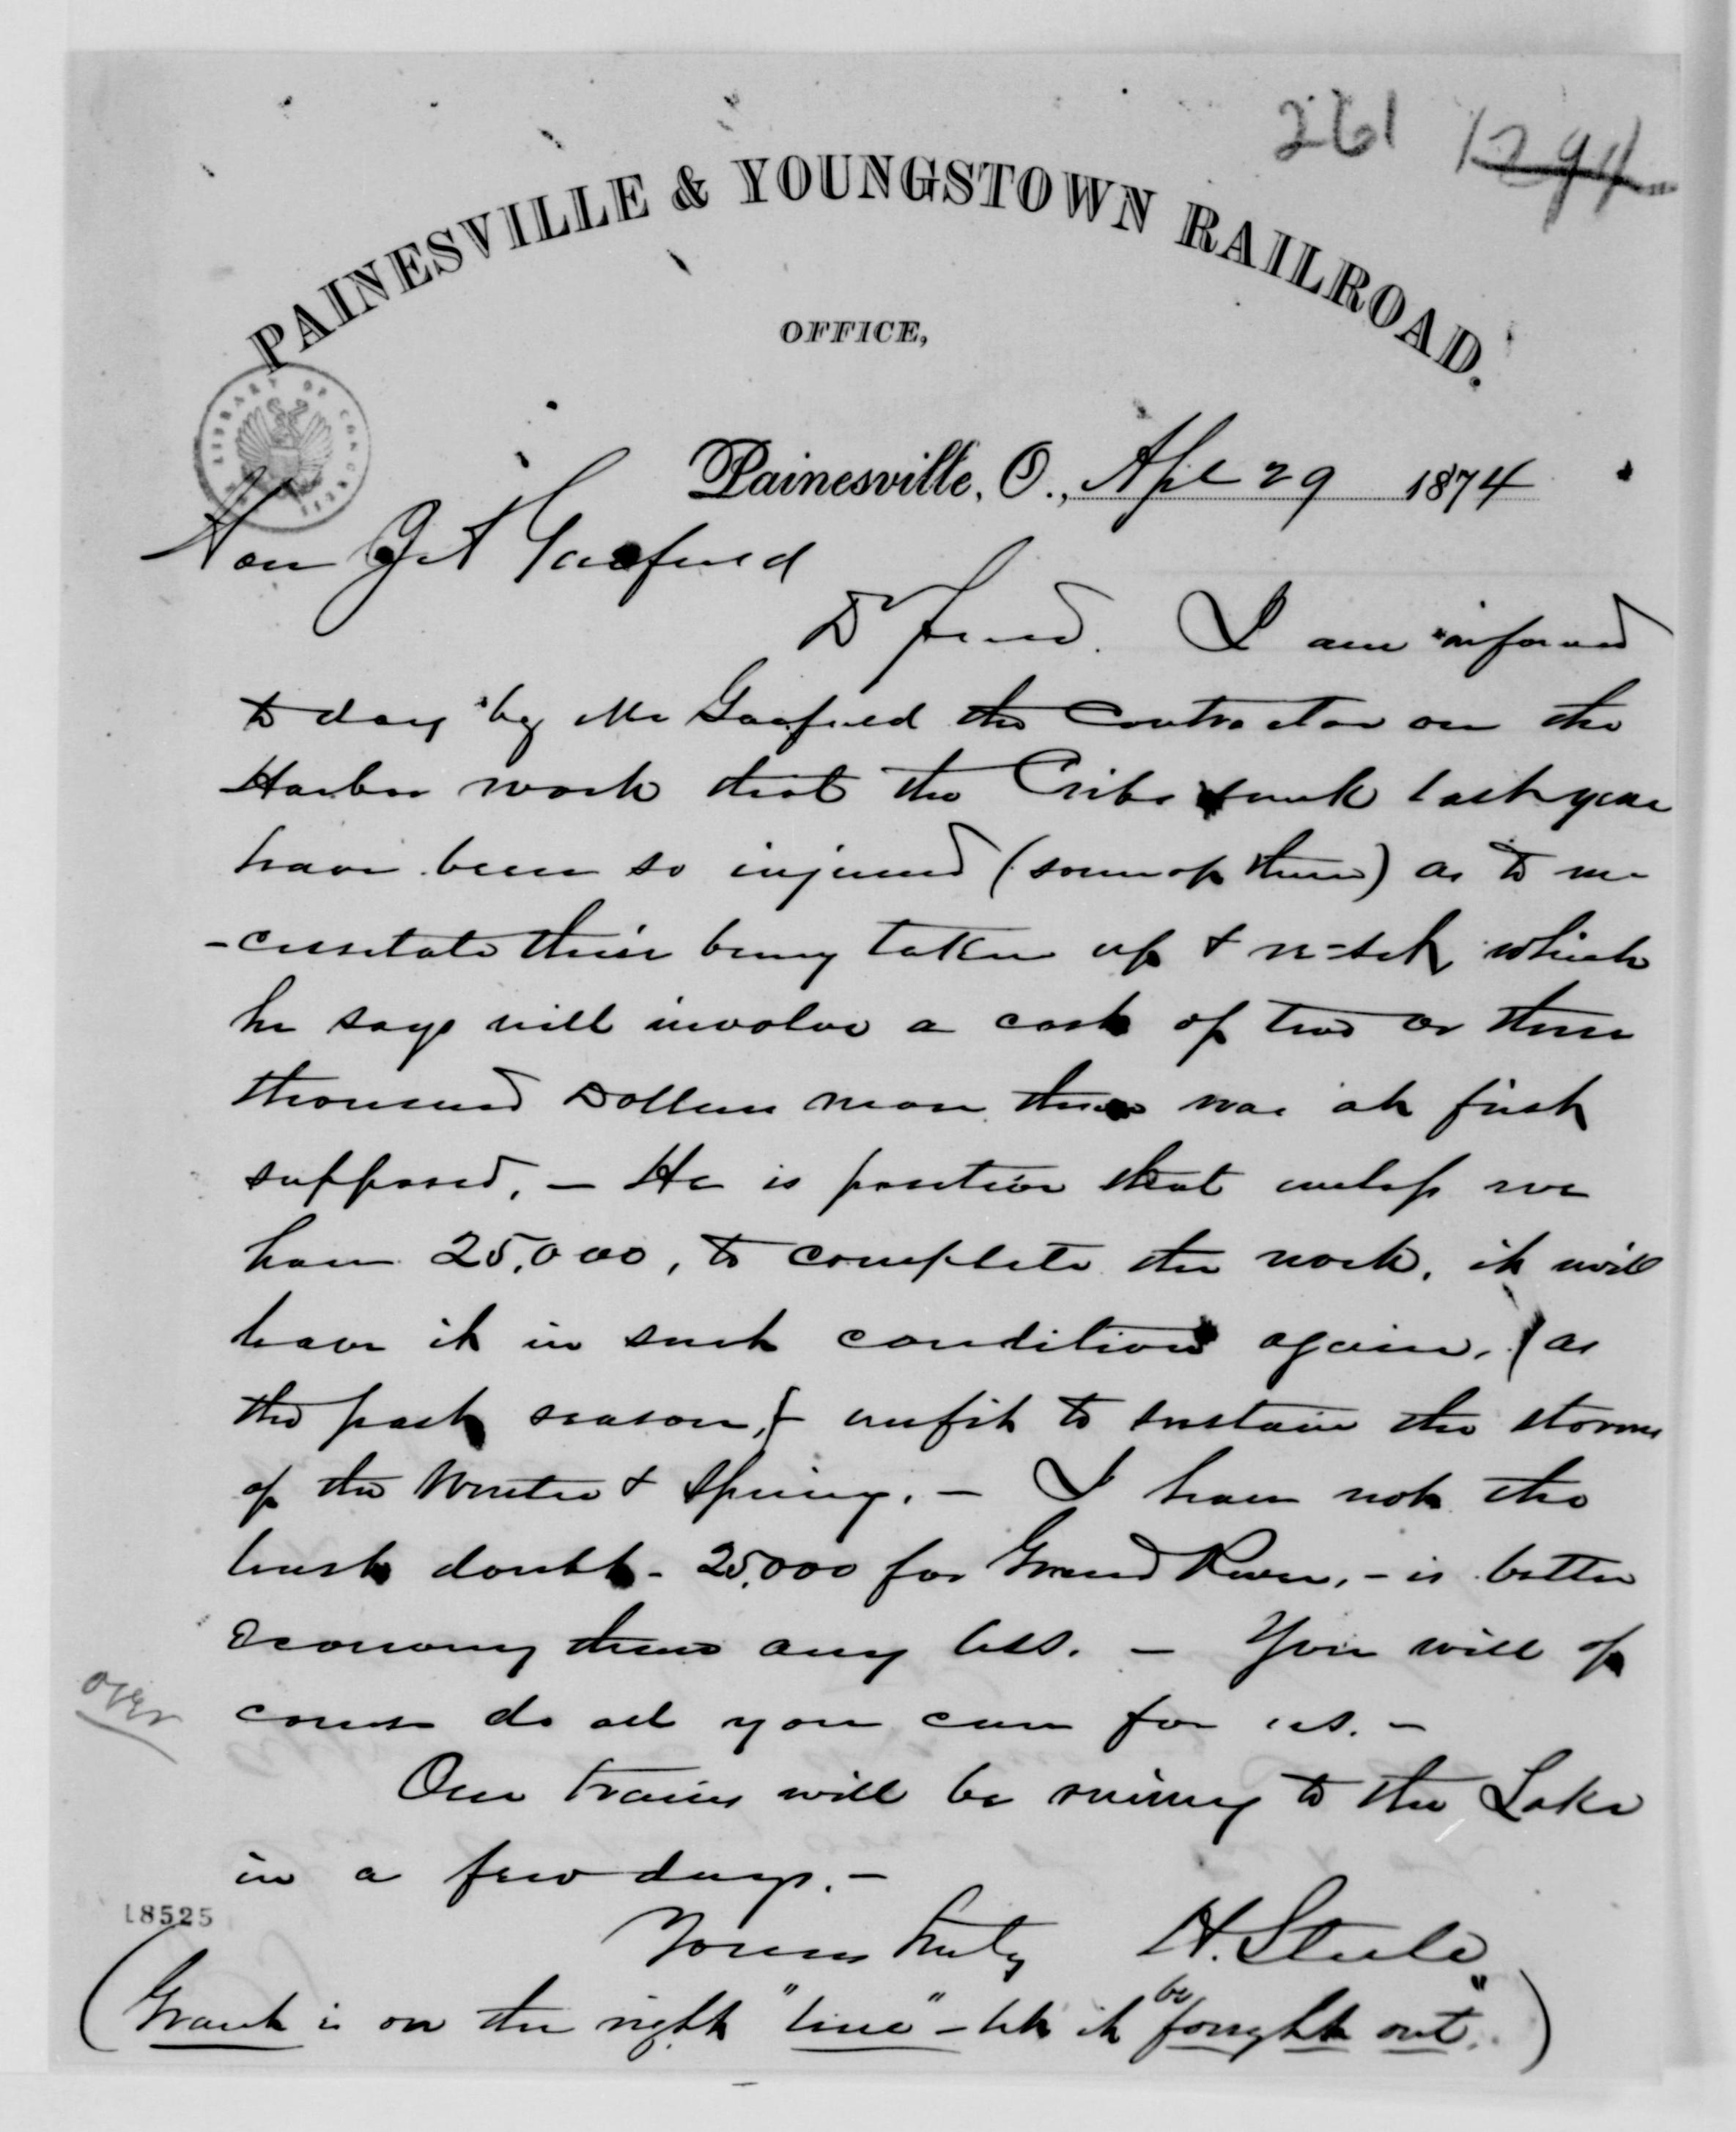 261 1294
PAINESVILLE & YOUNGSTOWN RAILROAD.
OFFICE,
LIBRARY OF CONGRESS
Painesville, O., Apl 29 1874
Hon J A Garfield
Dr friend. I am informed
to day by Mr Garfield the Contractor on the
Harbor work that the Cribs sunk last year
have been so injured (some of them) as to ne-
-cessitate their being taken up & re-set, which
he says will involve a cost of two or three
thousand Dollars more than was at first
supposed. — He is positive that unless we
have 25,000, to complete the work, it will
leave it in such condition again, (as
the past season,) unfit to sustain the storms
of the Winter & Spring. — I have not the
least doubt - 25,000 for Grand River, - is better
economy than any less. — You will of
course do all you can for us. —
over
Our trains will be runing to the Lake
in a few days. —
18525
Yours truly H. Steele
(Grant is on the right "line" - let it be fought out.")